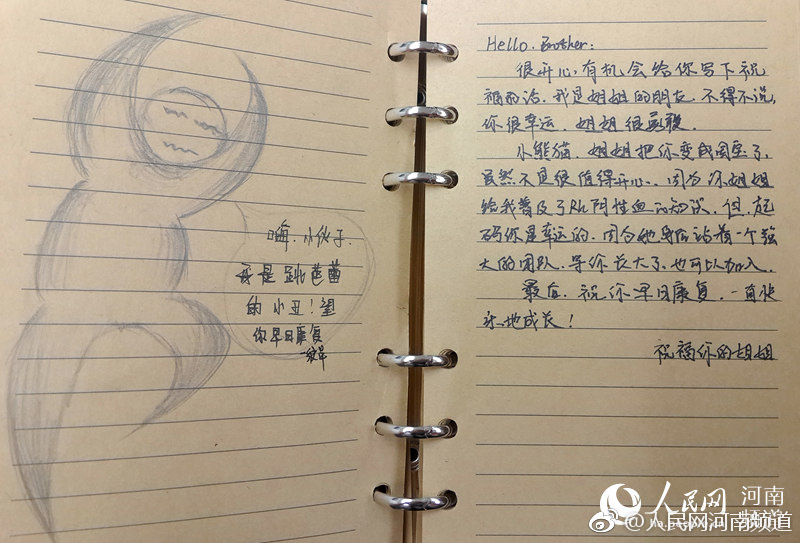 嗨，小伙子，
我是跳芭蕾
的小丑！望
你早日康复
Hello. Brother:
很开心，有机会给你写下祝
福的话，我是姐姐的朋友，不得不说，
你很幸运，姐姐很勇敢。
小熊猫，姐姐把你变成国宝了，
虽然不是很值得开心，因为你姐姐
给我普及了Rh阴性血的知识，但，起
码你是幸运的，因为她身后站着一个强
大的团队，等你长大了，也可以加入。
最后，祝你早日康复，一直快
乐地成长！
祝福你的姐姐
人民网 河南
频道
@人民网河南频道